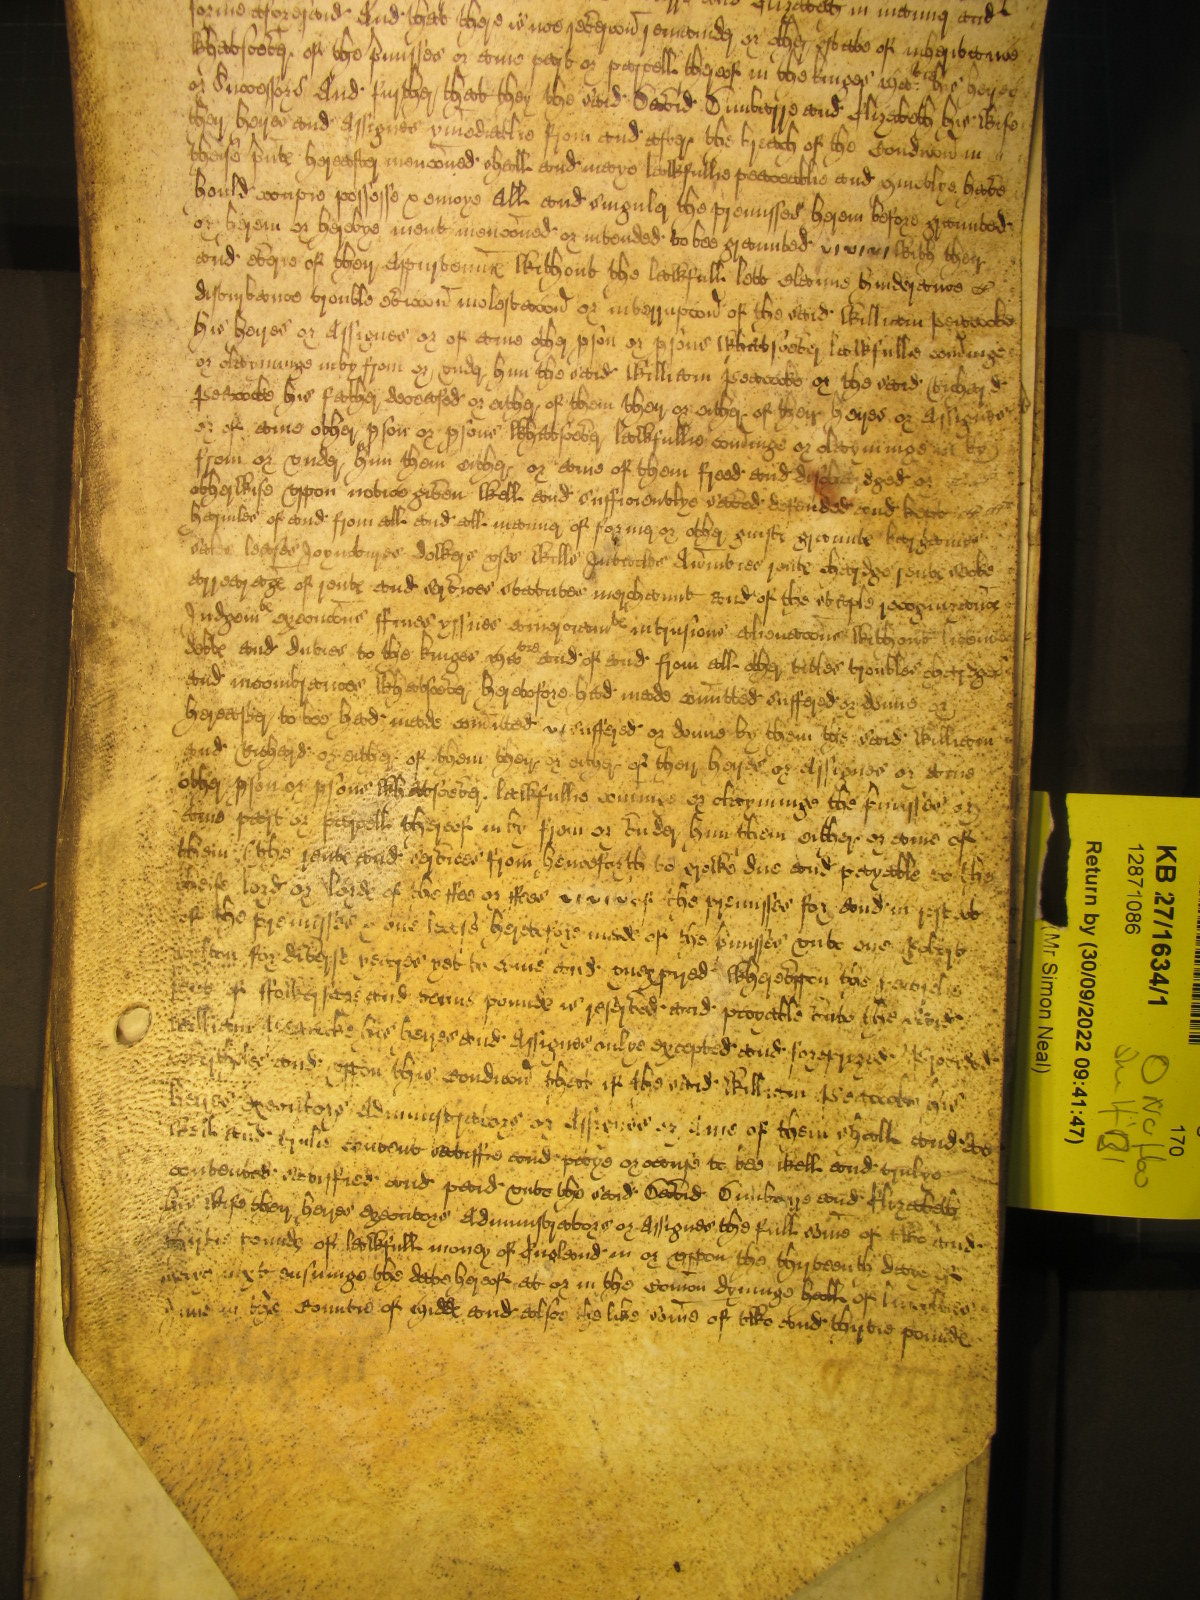 forme aforesaid And that there is noe revercon remainder or other estate of inheritance
whatsoever of the pmisses or anie part or parcell thereof in the kinges Matie his heyres
or Successors And further that they the said David Simbarye and Elizabeth his wife
their heyres and Assignes ymediatlie from and after the breach of the Condicon in
theise pnts hereafter menconed shall and maye lawfullie peaceablie and quietlye have
hould occupie possesse & enioye All and singuler the premisses herein before graunted
or herein or hereby ment menconed or intended to bee graunted with their
and everie of their Apurtennces without the lawfull lett deniall hinderance
disturbance trouble eviccon molestacon or interrupcon of the said William Peacocke
his heyres or Assignes or of anie other pson or psons whatsoever lawfullie cominge
or clayminge in by from or vnder him the said William Peacocke or the said Richard
Peacocke his father deceased or either of them their or either of their heyres or Assignes
or of anie other pson or psons whatsoever lawfullie cominge or clayminge in by
from or vnder him them either or anie of them freed and discharged or
otherwise vppon notice given well and sufficientlye saved defended and kept
harmles of and from all and all manner of former or other guifts graunts bargaines
sales leases Joyntures dowers vses wills Intailes Annuities rents chardge rents secke
arrerages of rents and services statutes merchant and of the staple recognizances
Judgemts execucons ffines yssues amerciamts intrusions alienacons without licence
debts and duties to the kinges Matie and of and from all other titles troubles chardges
and incombrances whatsoever heretofore had made comitted suffered or donne or
hereafter to bee had made comitted suffered or donne by them the said William
and Richard or either of them their or either of their heyres or Assignes or anie
other pson or psons whatsoever lawfullie cominge or clayminge the pmisses or
anie part or parcell thereof in by from or vnder him them either or anie of
them (the rents and services from henceforth to growe due and payable to the
cheife lord or lords of the ffee or ffees of the premisses for and in respect
of the premisses & one lease heretofore made of the pmisses vnto one Robert
for diverse yeares yet to come and vnexpired wherevppon the yearelie
rent of pounds is reserved and payable vnto the said
William Peacocke his heyres and Assignes onlye excepted and foreprized Provided
and vppon this Condicon that if the said William Peacocke his
heyres executors Administrators or Assignes or anie of them shall and do
well and trulie content satisfie and paye or cause to bee well and trulye
contented satisfied and paid vnto the said David Simbarye and Elizabeth
his wife their heyres executors Administrators or Assignes the full some of two and
thirtie pounds of lawfull money of England in or vppon the thirteenth daie of
next ensuinge the date hereof at or in the Comon dyninge hall of Lincolnes
Inne in the Countie of Midds and alsoe the like some of two and thirtie pounds
KB 27/1634/1
12871086
Return by (30/09/2022 09:41:47)
(Mr Simon Neal)
170